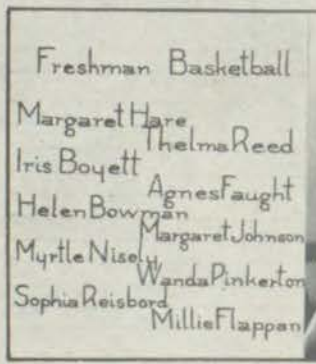 Freshman Basketball
Margaret Hare
Thelma Reed
Iris Boyett
Agnes Faught
Helen Bowman
Margaret Johnson
Myrtle Nisely
Wanda Pinkerton
Sophia Reisbord
Millie Flappan